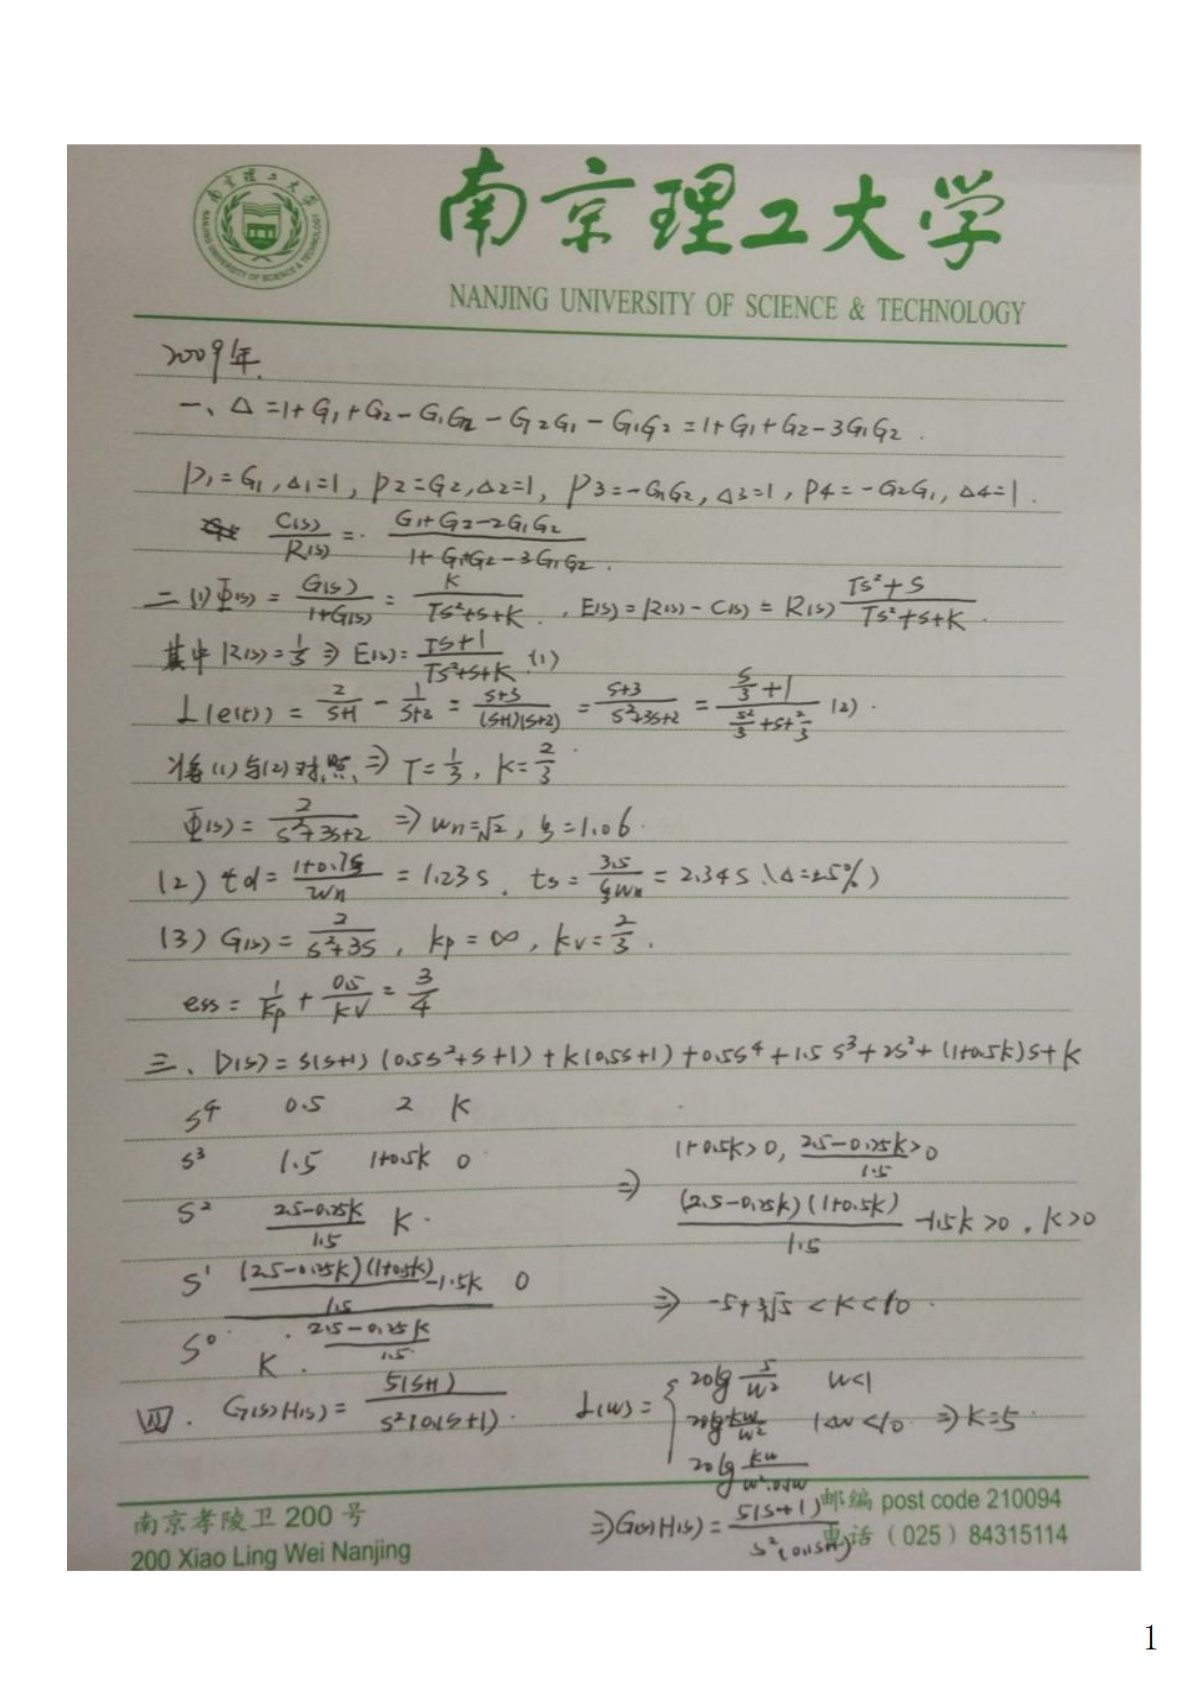 南京理工大学
NANJING UNIVERSITY OF SCIENCE & TECHNOLOGY
2009年.
一、Δ=1+G₁+G₂-G₁G₂-G₂G₁-G₁G₂=1+G₁+G₂-3G₁G₂.
P₁=G₁,Δ₁=1, P₂=G₂,Δ₂=1, P₃=-G₁G₂,Δ₃=1, P₄=-G₂G₁,Δ₄=1.
C(s)/R(s) = (G₁+G₂-2G₁G₂)/(1+G₁+G₂-3G₁G₂).
二(1)Φ(s) = G(s)/(1+G(s)) = K/(Ts²+s+K). , E(s)=R(s)-C(s)=R(s) (Ts²+s)/(Ts²+s+K).
其中R(s)=1/s ⇒ E(s)=(Ts+1)/(Ts²+s+K) (1)
L(e(t)) = 2/(s+1) - 1/(s+2) = (s+3)/((s+1)(s+2)) = (s+3)/(s²+3s+2) = (s/3+1)/(s²/3+s+2/3) (2).
将(1)与(2)对照 ⇒ T=1/3, K=2/3
Φ(s)= 2/(s²+3s+2) ⇒ wn=√2, ξ=1.06.
(2) td = (1+0.7ξ)/wn = 1.23s. ts = 3.5/(ξwn) = 2.34s.(Δ=±5%)
(3) G(s)= 2/(s²+3s), kp=∞, kv=2/3.
ess = 1/kp + 0.5/kv = 3/4
三、D(s)=s(s+1)(0.5s²+s+1)+k(0.5s+1)+0.5s⁴+1.5s³+2s²+(1+0.5k)s+k
s⁴ 0.5 2 K
s³ 1.5 1+0.5k 0 1+0.5k>0, (2.5-0.25k)/1.5>0
s² (2.5-0.25k)/1.5 K. ⇒ (2.5-0.25k)(1+0.5k)/1.5 -1.5k>0, k>0
s¹ ((2.5-0.25k)(1+0.5k)/1.5 -1.5k)/((2.5-0.25k)/1.5) 0 ⇒ -5+3√5<K<10.
s⁰ K.
四. G(s)H(s)= 5(s+1)/(s²(0.1s+1)). L(w)= { 20lg 5/w² w<1
20lg kw/w² 1<w<10 ⇒ K=5.
20lg kw/(w²·0.1w)
⇒G(s)H(s)= 5(s+1)/(s²(0.1s+1))
南京孝陵卫 200 号
200 Xiao Ling Wei Nanjing
邮编 post code 210094
电话（025）84315114
1